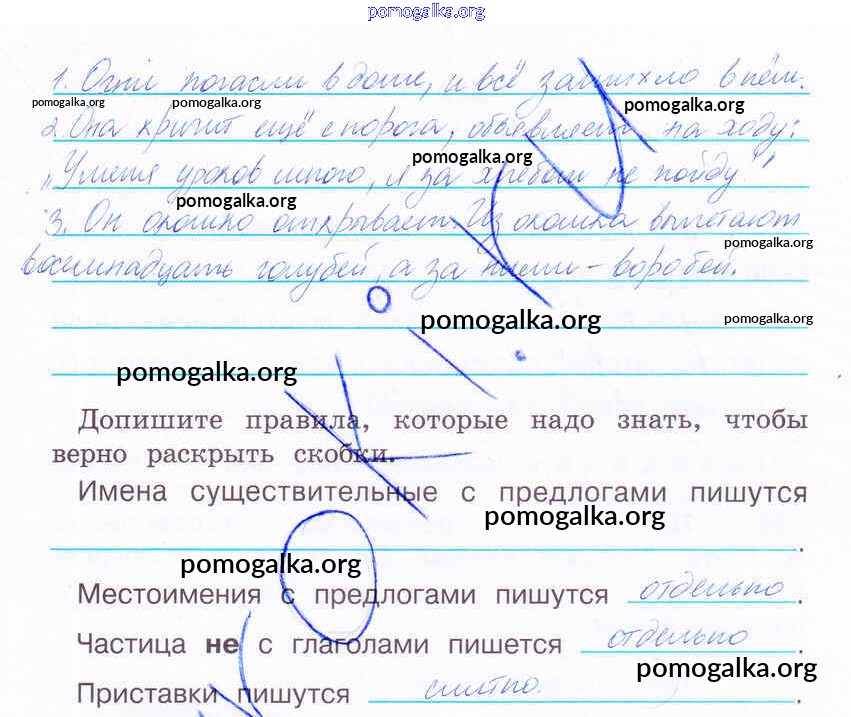 pomogalka.org
1. Огни погасли в доме, и всё затихло в нём.
pomogalka.org pomogalka.org pomogalka.org
2. Она кричит ещё с порога, объявляет на ходу:
pomogalka.org
„У меня уроков много, я за хлебом не пойду!"
pomogalka.org
3. Он окошко открывает. Из окошка вылетают
pomogalka.org
восемнадцать голубей, а за ними – воробей.
pomogalka.org pomogalka.org
pomogalka.org
Допишите правила, которые надо знать, чтобы
верно раскрыть скобки.
Имена существительные с предлогами пишутся
pomogalka.org
.
pomogalka.org
Местоимения с предлогами пишутся отдельно.
Частица не с глаголами пишется отдельно.
pomogalka.org
Приставки пишутся слитно.